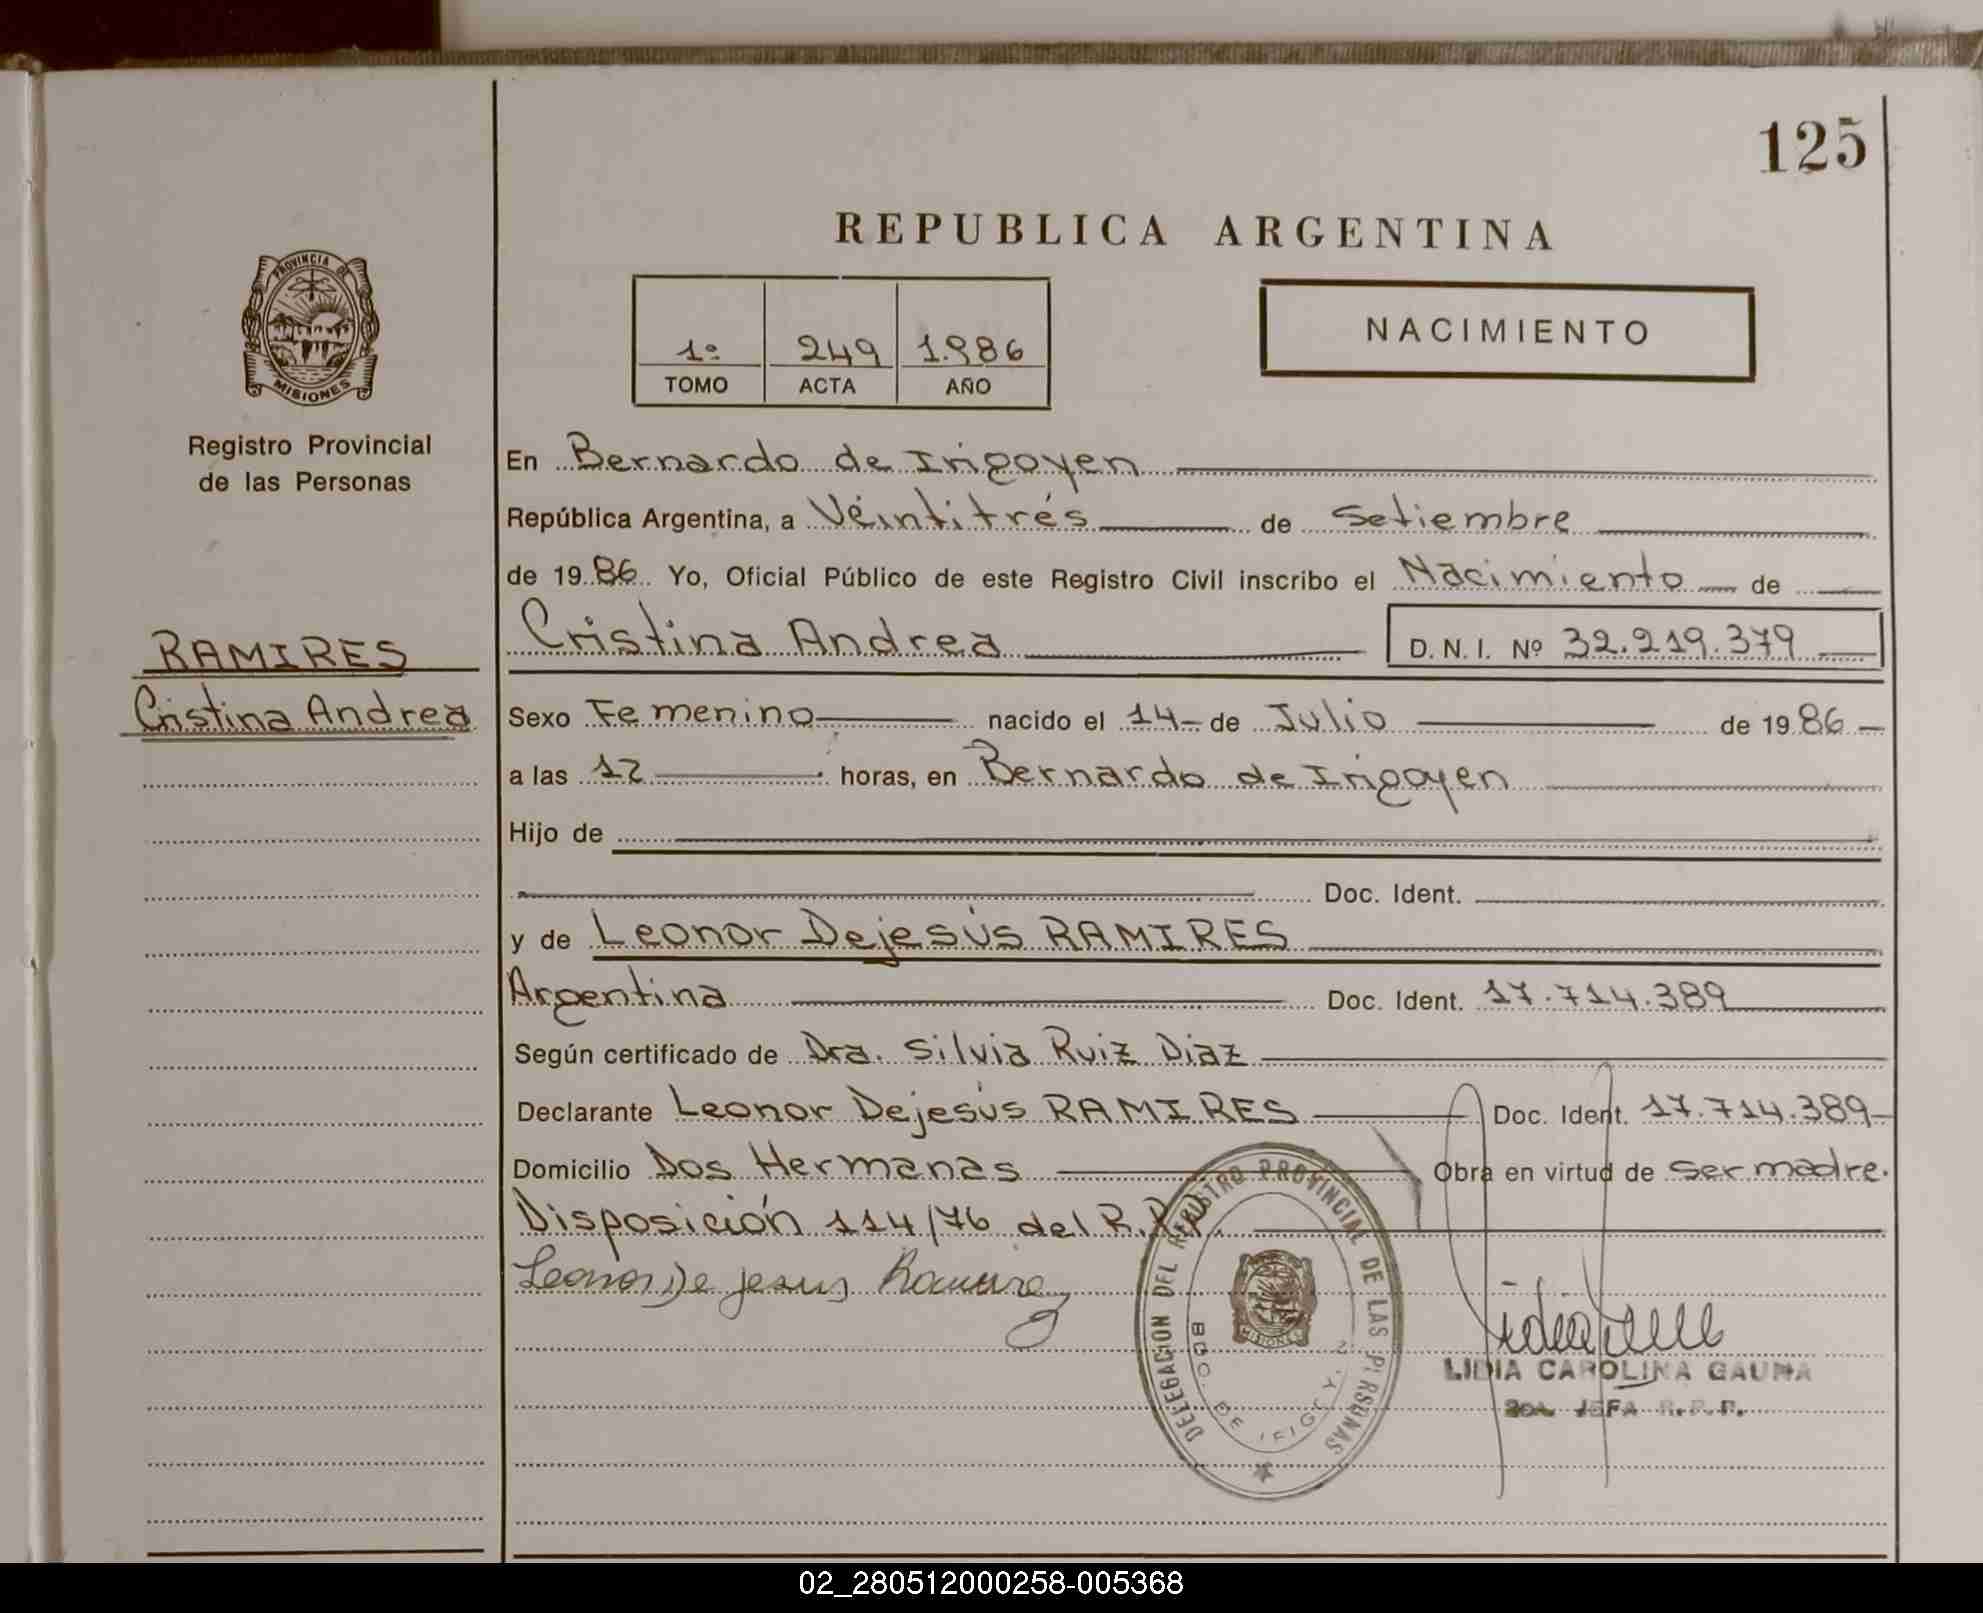 125
REPUBLICA ARGENTINA
PROVINCIA DE
MISIONES
Registro Provincial
de las Personas
1º 249 1.986
TOMO ACTA AÑO
NACIMIENTO
En Bernardo de Irigoyen
República Argentina, a Veintitrés de Setiembre
de 1986 Yo, Oficial Público de este Registro Civil inscribo el Nacimiento de
RAMIRES
Cristina Andrea
Cristina Andrea D.N.I. Nº 32.219.379
Sexo Femenino nacido el 14 de Julio de 1986
a las 12 horas, en Bernardo de Irigoyen
Hijo de
Doc. Ident.
y de Leonor Dejesús RAMIRES
Argentina Doc. Ident. 17.714.389
Según certificado de Dra. Silvia Ruiz Diaz
Declarante Leonor Dejesús RAMIRES Doc. Ident. 17.714.389
Domicilio Dos Hermanas Obra en virtud de ser madre.
Disposición 114/76 del R.P.P.
Leonor De jesus Ramirez
DELEGACION DEL REGISTRO PROVINCIAL DE LAS PERSONAS
BDO. DE IRIGOY.
MISIONES
LIDIA CAROLINA GAUNA
2da. JEFA R.P.P.
02_280512000258-005368